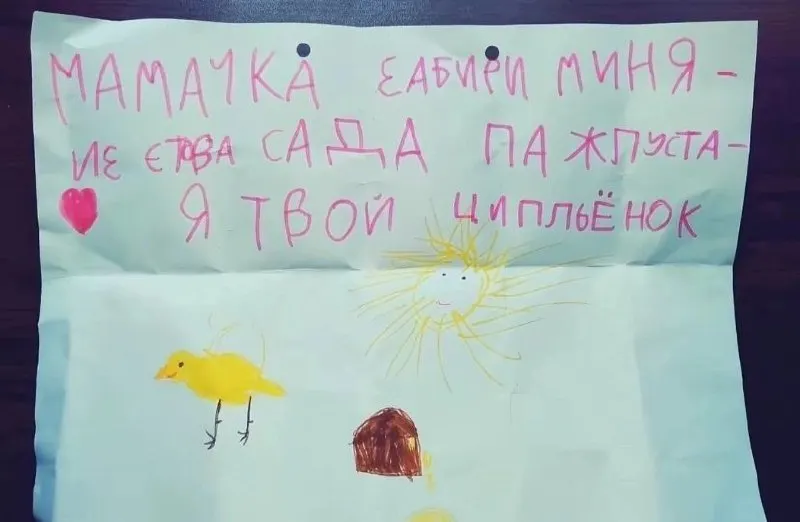 МАМАЧКА ЕАБИРИ МИНЯ -
ИЕ ЕТОВА САДА ПАЖПУСТА -
Я ТВОЙ ЦИПЛЬЁНОК